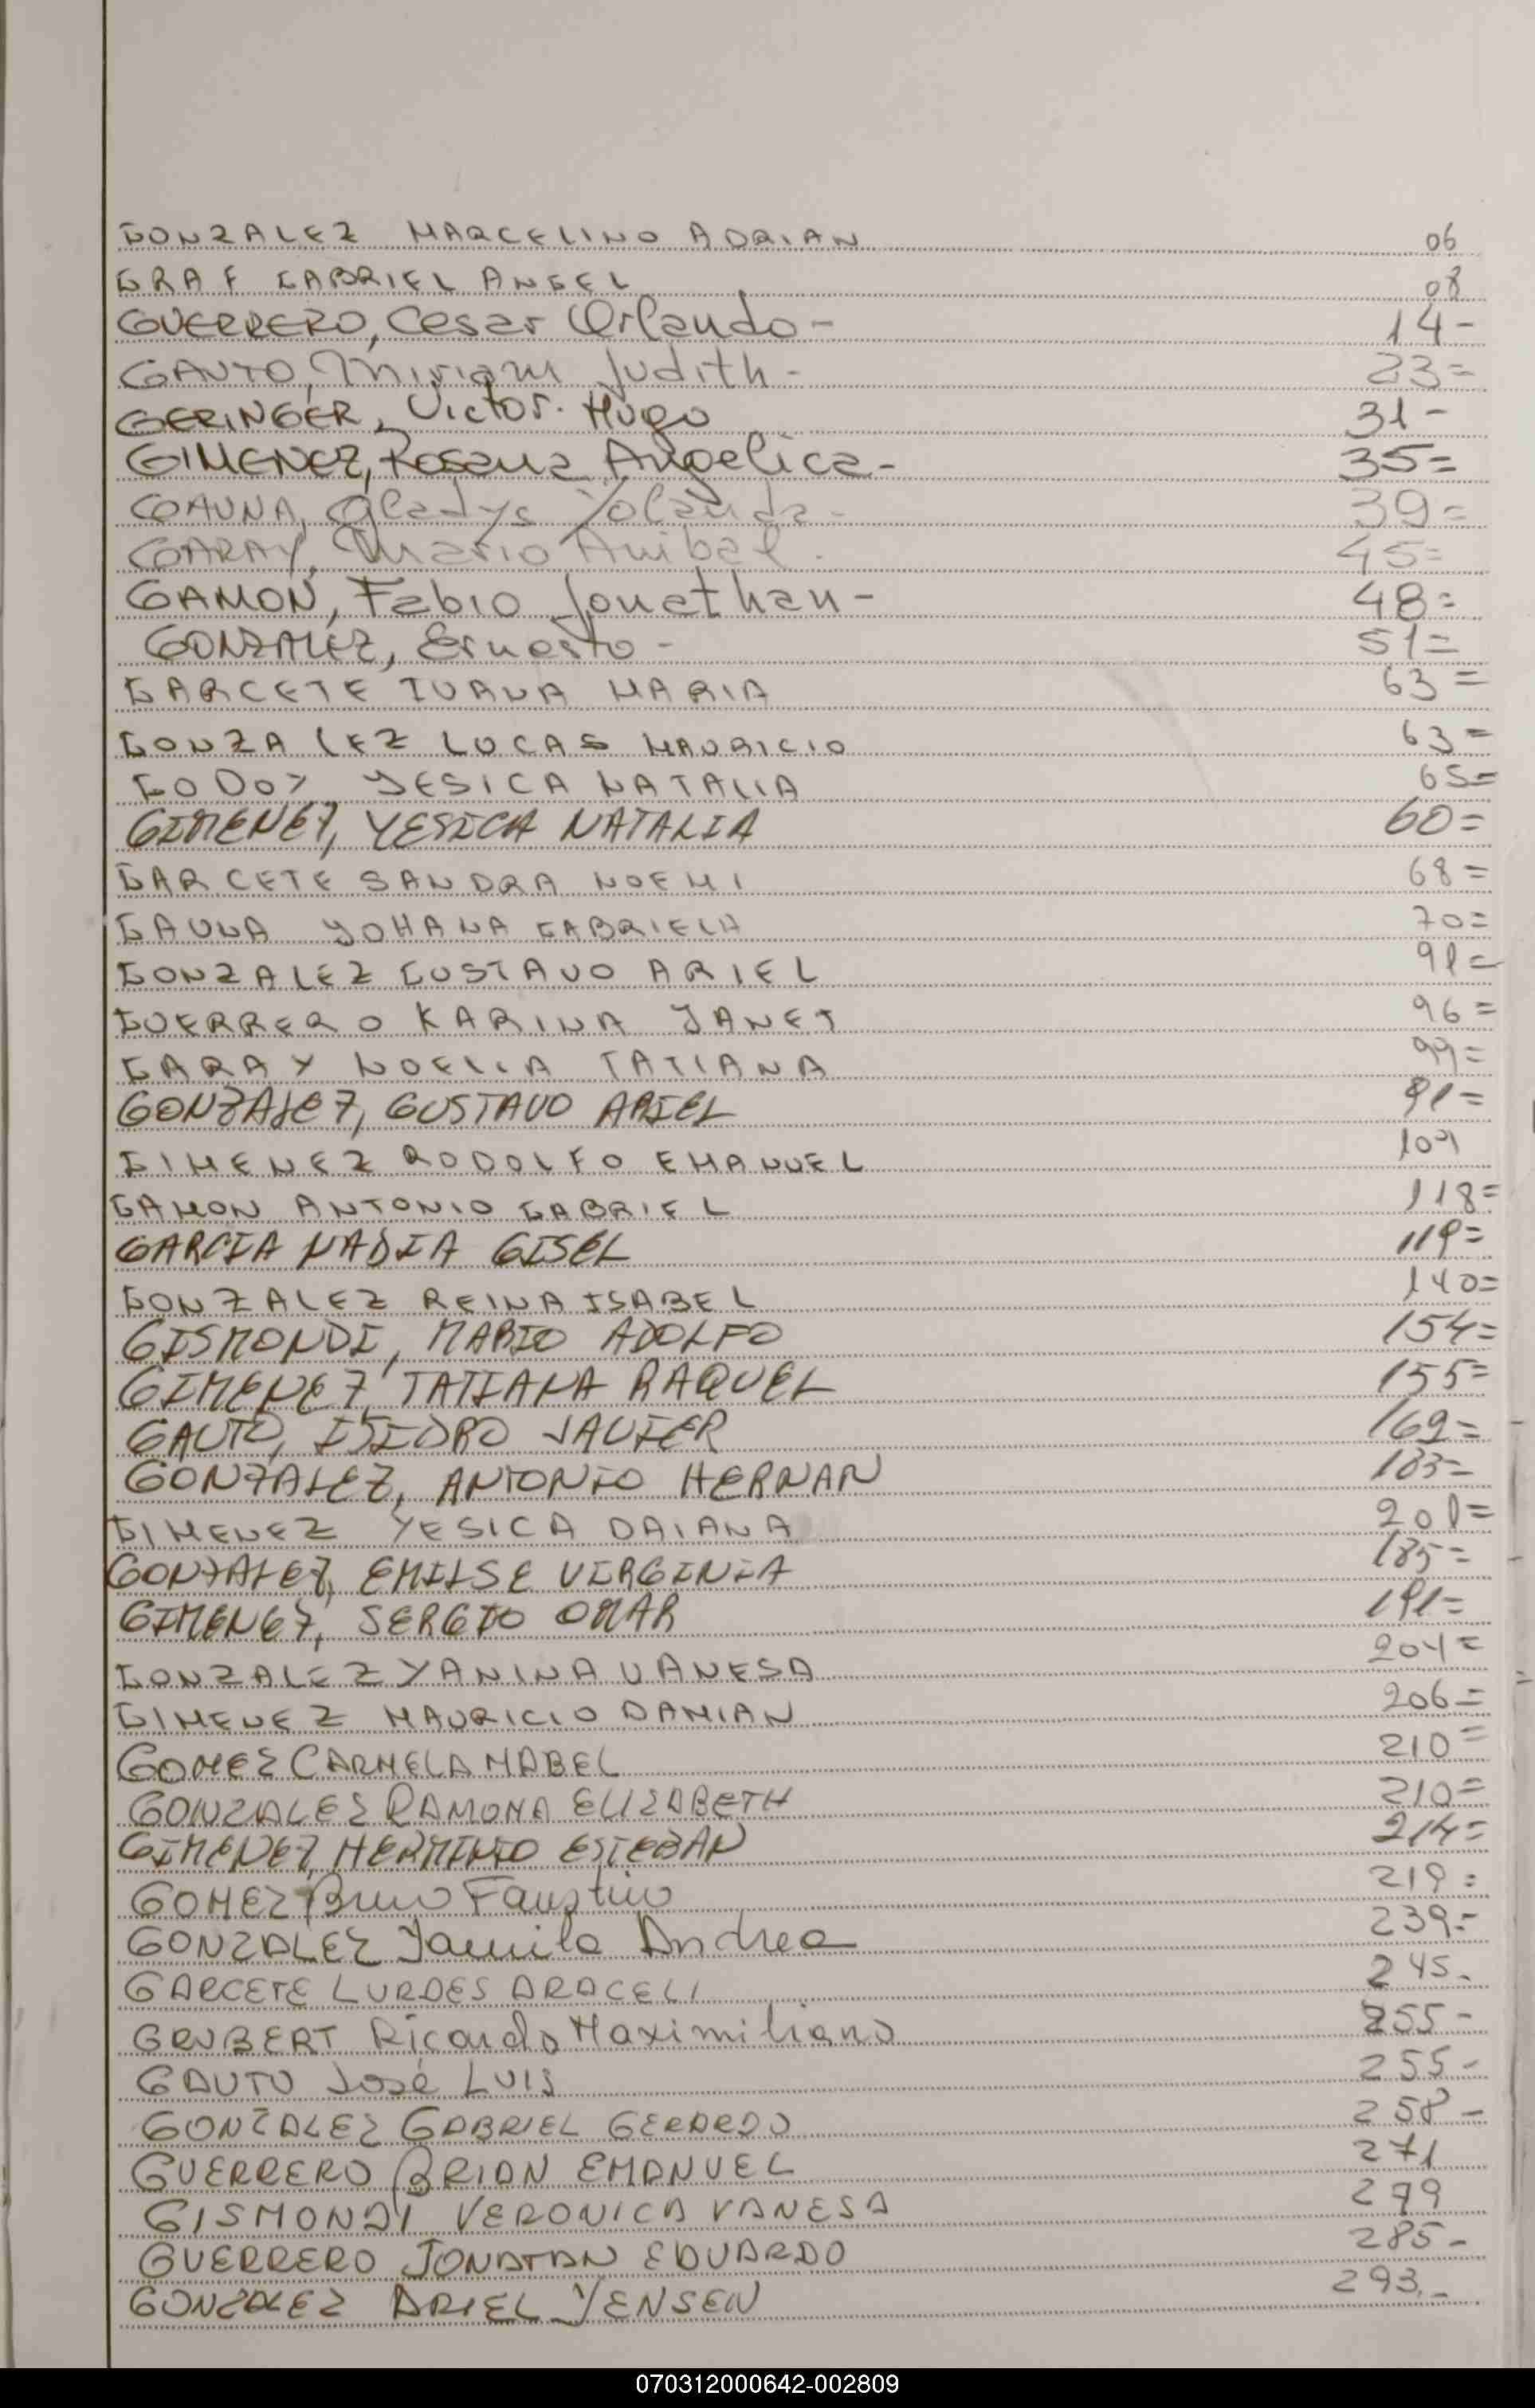 GONZALEZ MARCELINO ADRIAN 06
GRAF GABRIEL ANGEL 08
GUERRERO, Cesar Orlando- 14-
GAUTO, Miriam Judith- 23=
GERINGER, Victor. Hugo 31-
GIMENEZ, Rosana Angelica- 35=
GAUNA, Gladys Yolanda- 39=
GARAY, Mario Anibal. 45=
GAMON, Fabio Jonathan- 48=
GONZALEZ, Ernesto- 51=
GARCETE IVANA MARIA 63=
GONZALEZ LUCAS MAURICIO 63=
GODOY YESICA NATALIA 65=
GIMENEZ, YESICA NATALIA 60=
GARCETE SANDRA NOEMI 68=
GAUNA YOHANA GABRIELA 70=
GONZALEZ GUSTAVO ARIEL 91=
GUERRERO KARINA JANET 96=
GARAY NOELIA TATIANA 99=
GONZALEZ, GUSTAVO ARIEL 91=
GIMENEZ RODOLFO EMANUEL 109
GAMON ANTONIO GABRIEL 118=
GARCIA NADIA GISEL 119=
GONZALEZ REINA ISABEL 140=
GISMONDI, MARIO ADOLFO 154=
GIMENEZ, TATIANA RAQUEL 155=
GAUTO, ISIDRO JAVIER 169=
GONZALEZ, ANTONIO HERNAN 183=
GIMENEZ YESICA DAIANA 201=
GONZALEZ, EMILSE VIRGINIA 185=
GIMENEZ, SERGIO OMAR 191=
GONZALEZ YANINA VANESA 204=
GIMENEZ MAURICIO DAMIAN 206=
GOMEZ CARMELA MABEL 210=
GONZALEZ RAMONA ELIZABETH 210=
GIMENEZ, HERMINIO ESTEBAN 214=
GOMEZ Bruno Faustino 219=
GONZALEZ Yamila Andrea 239=
GARCETE LURDES ARACELI 245.
GRUBERT Ricardo Maximiliano 255-
GAUTO José LUIS 255-
GONZALEZ GABRIEL GERARDO 258-
GUERRERO BRIAN EMANUEL 271
GISMONDI VERONICA VANESA 279
GUERRERO JONATAN EDUARDO 285-
GONZALEZ ARIEL YENSEN 293.-
070312000642-002809